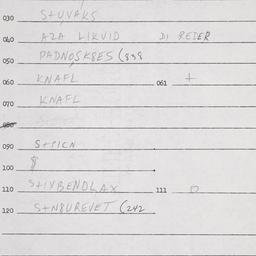 030 S+U,VAKS
040 AZA LIKVID DI REDER
050 PADNOSK8ES (898
060 KNAFL 061 +
070 KNAFL
080
090 S+PICN
100 8
110 S+IVBENDLAX 111 O
120 S+N8UREVET (242